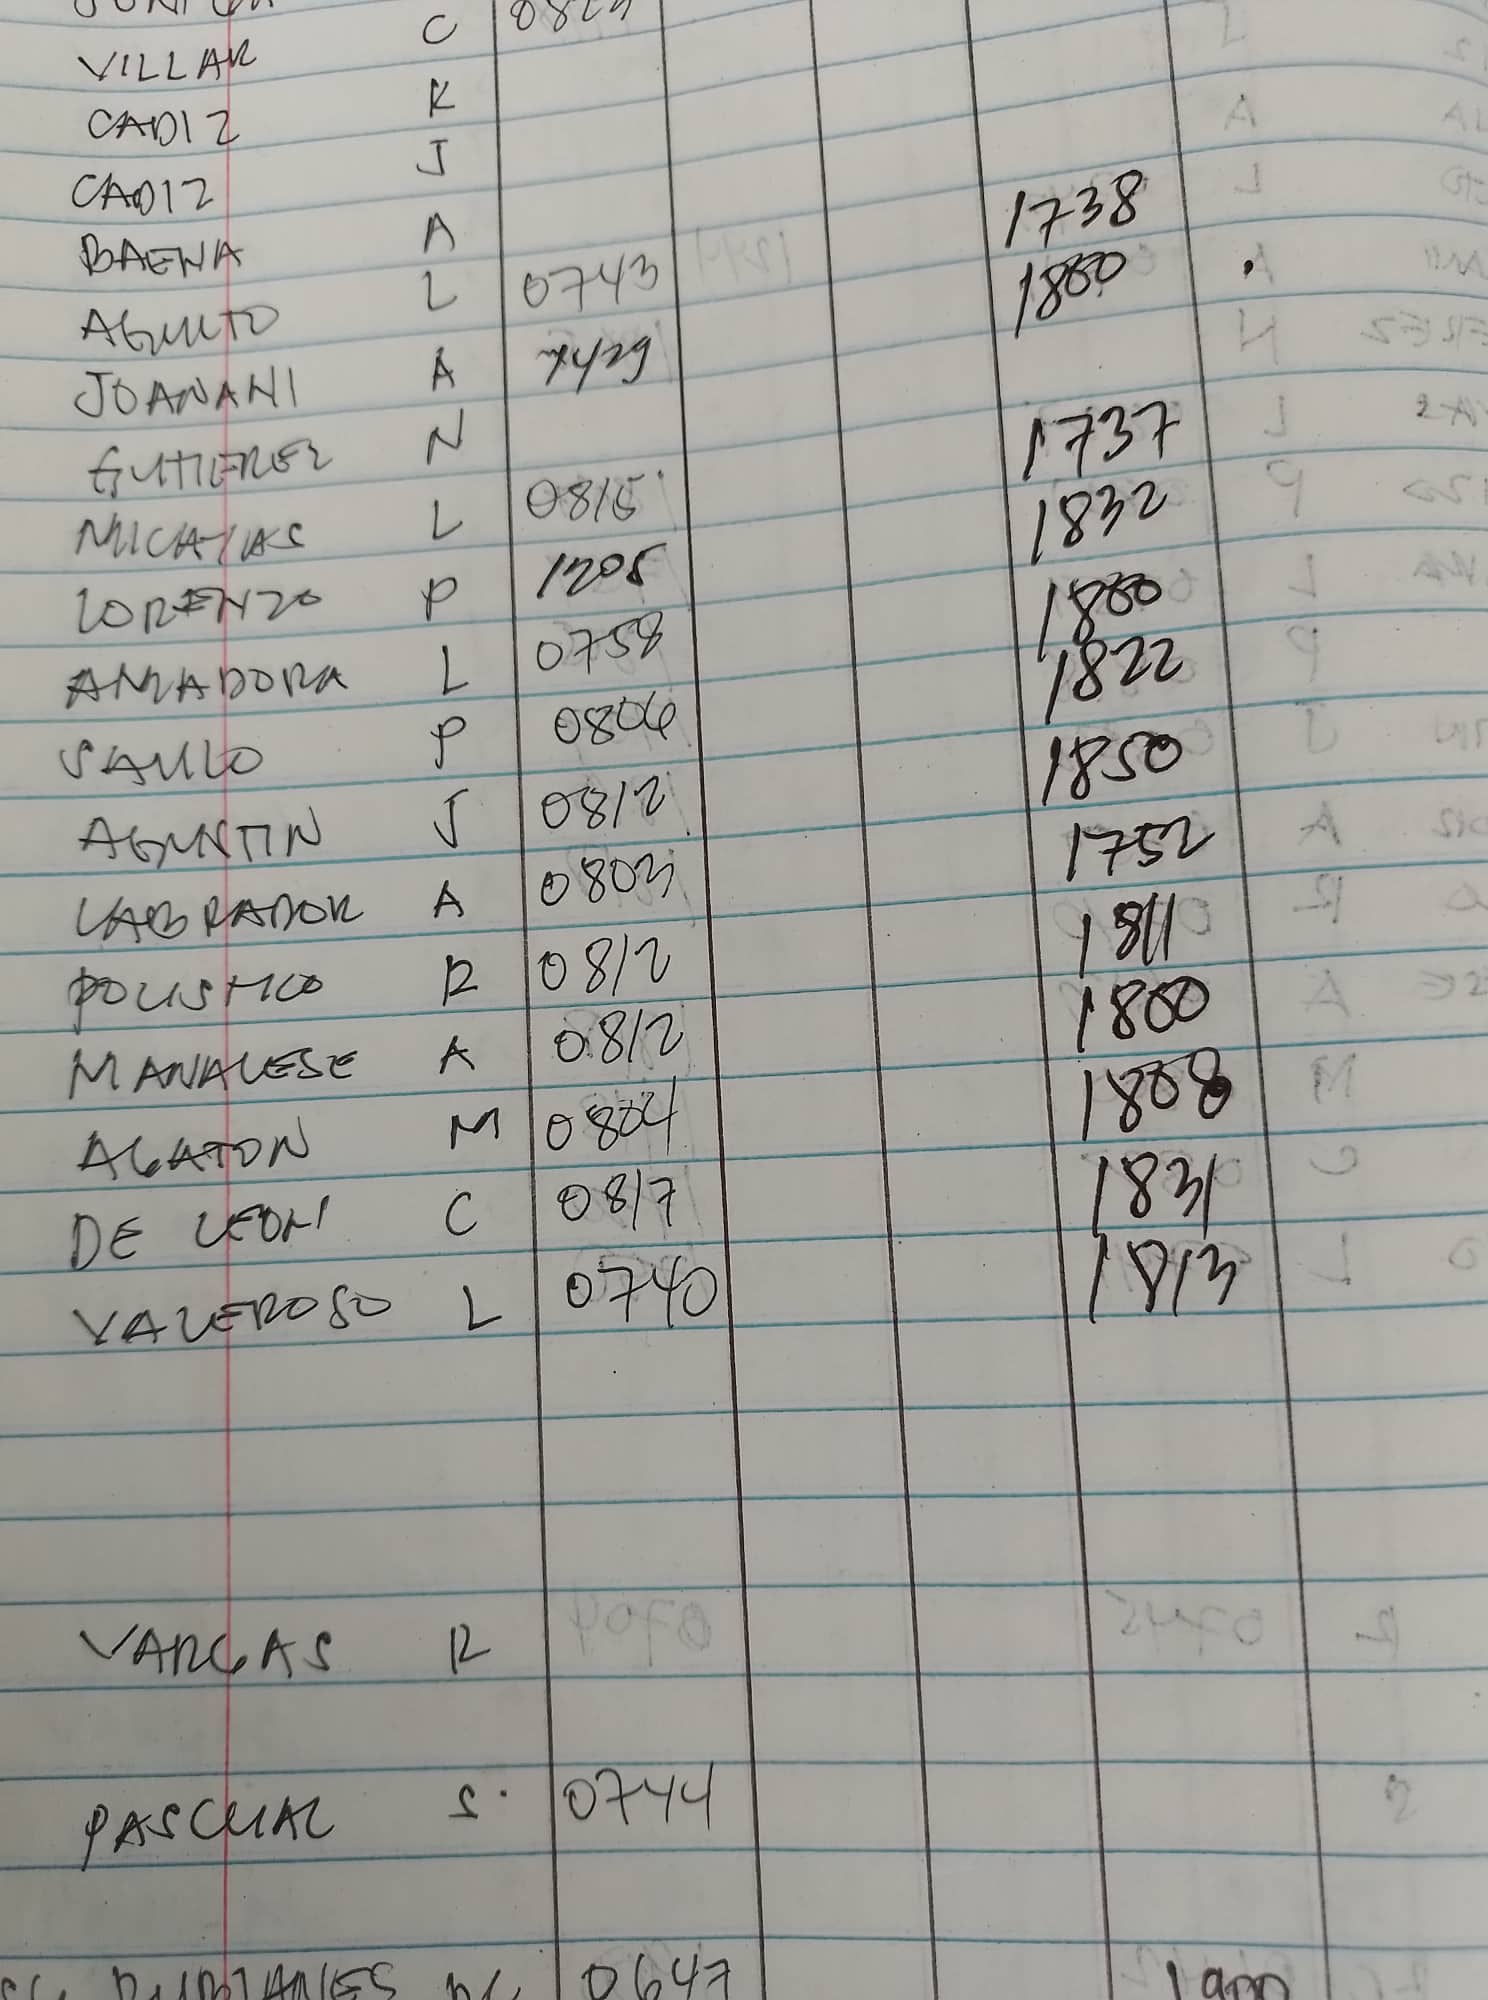 VILLAR C
CADIZ K
CADIZ J
BAENA A 1738
AGUUTO L 0743 1800
JOANANI A
GUTIEREZ N 1737
MICAYAS L 0815 1832
LORENZO P 1205 1800
AMADORA L 0758 1822
SAULO P 0806 1850
AGUSTIN J 0812 1752
LABRADOR A 0803 1811
POLISTICO R 0812 1800
MANALESE A 0812 1808
AGATON M 0804 1831
DE LEON C 0817 1813
VALEROSO L 0740
VARGAS R
PASCUAL S. 0744
0647